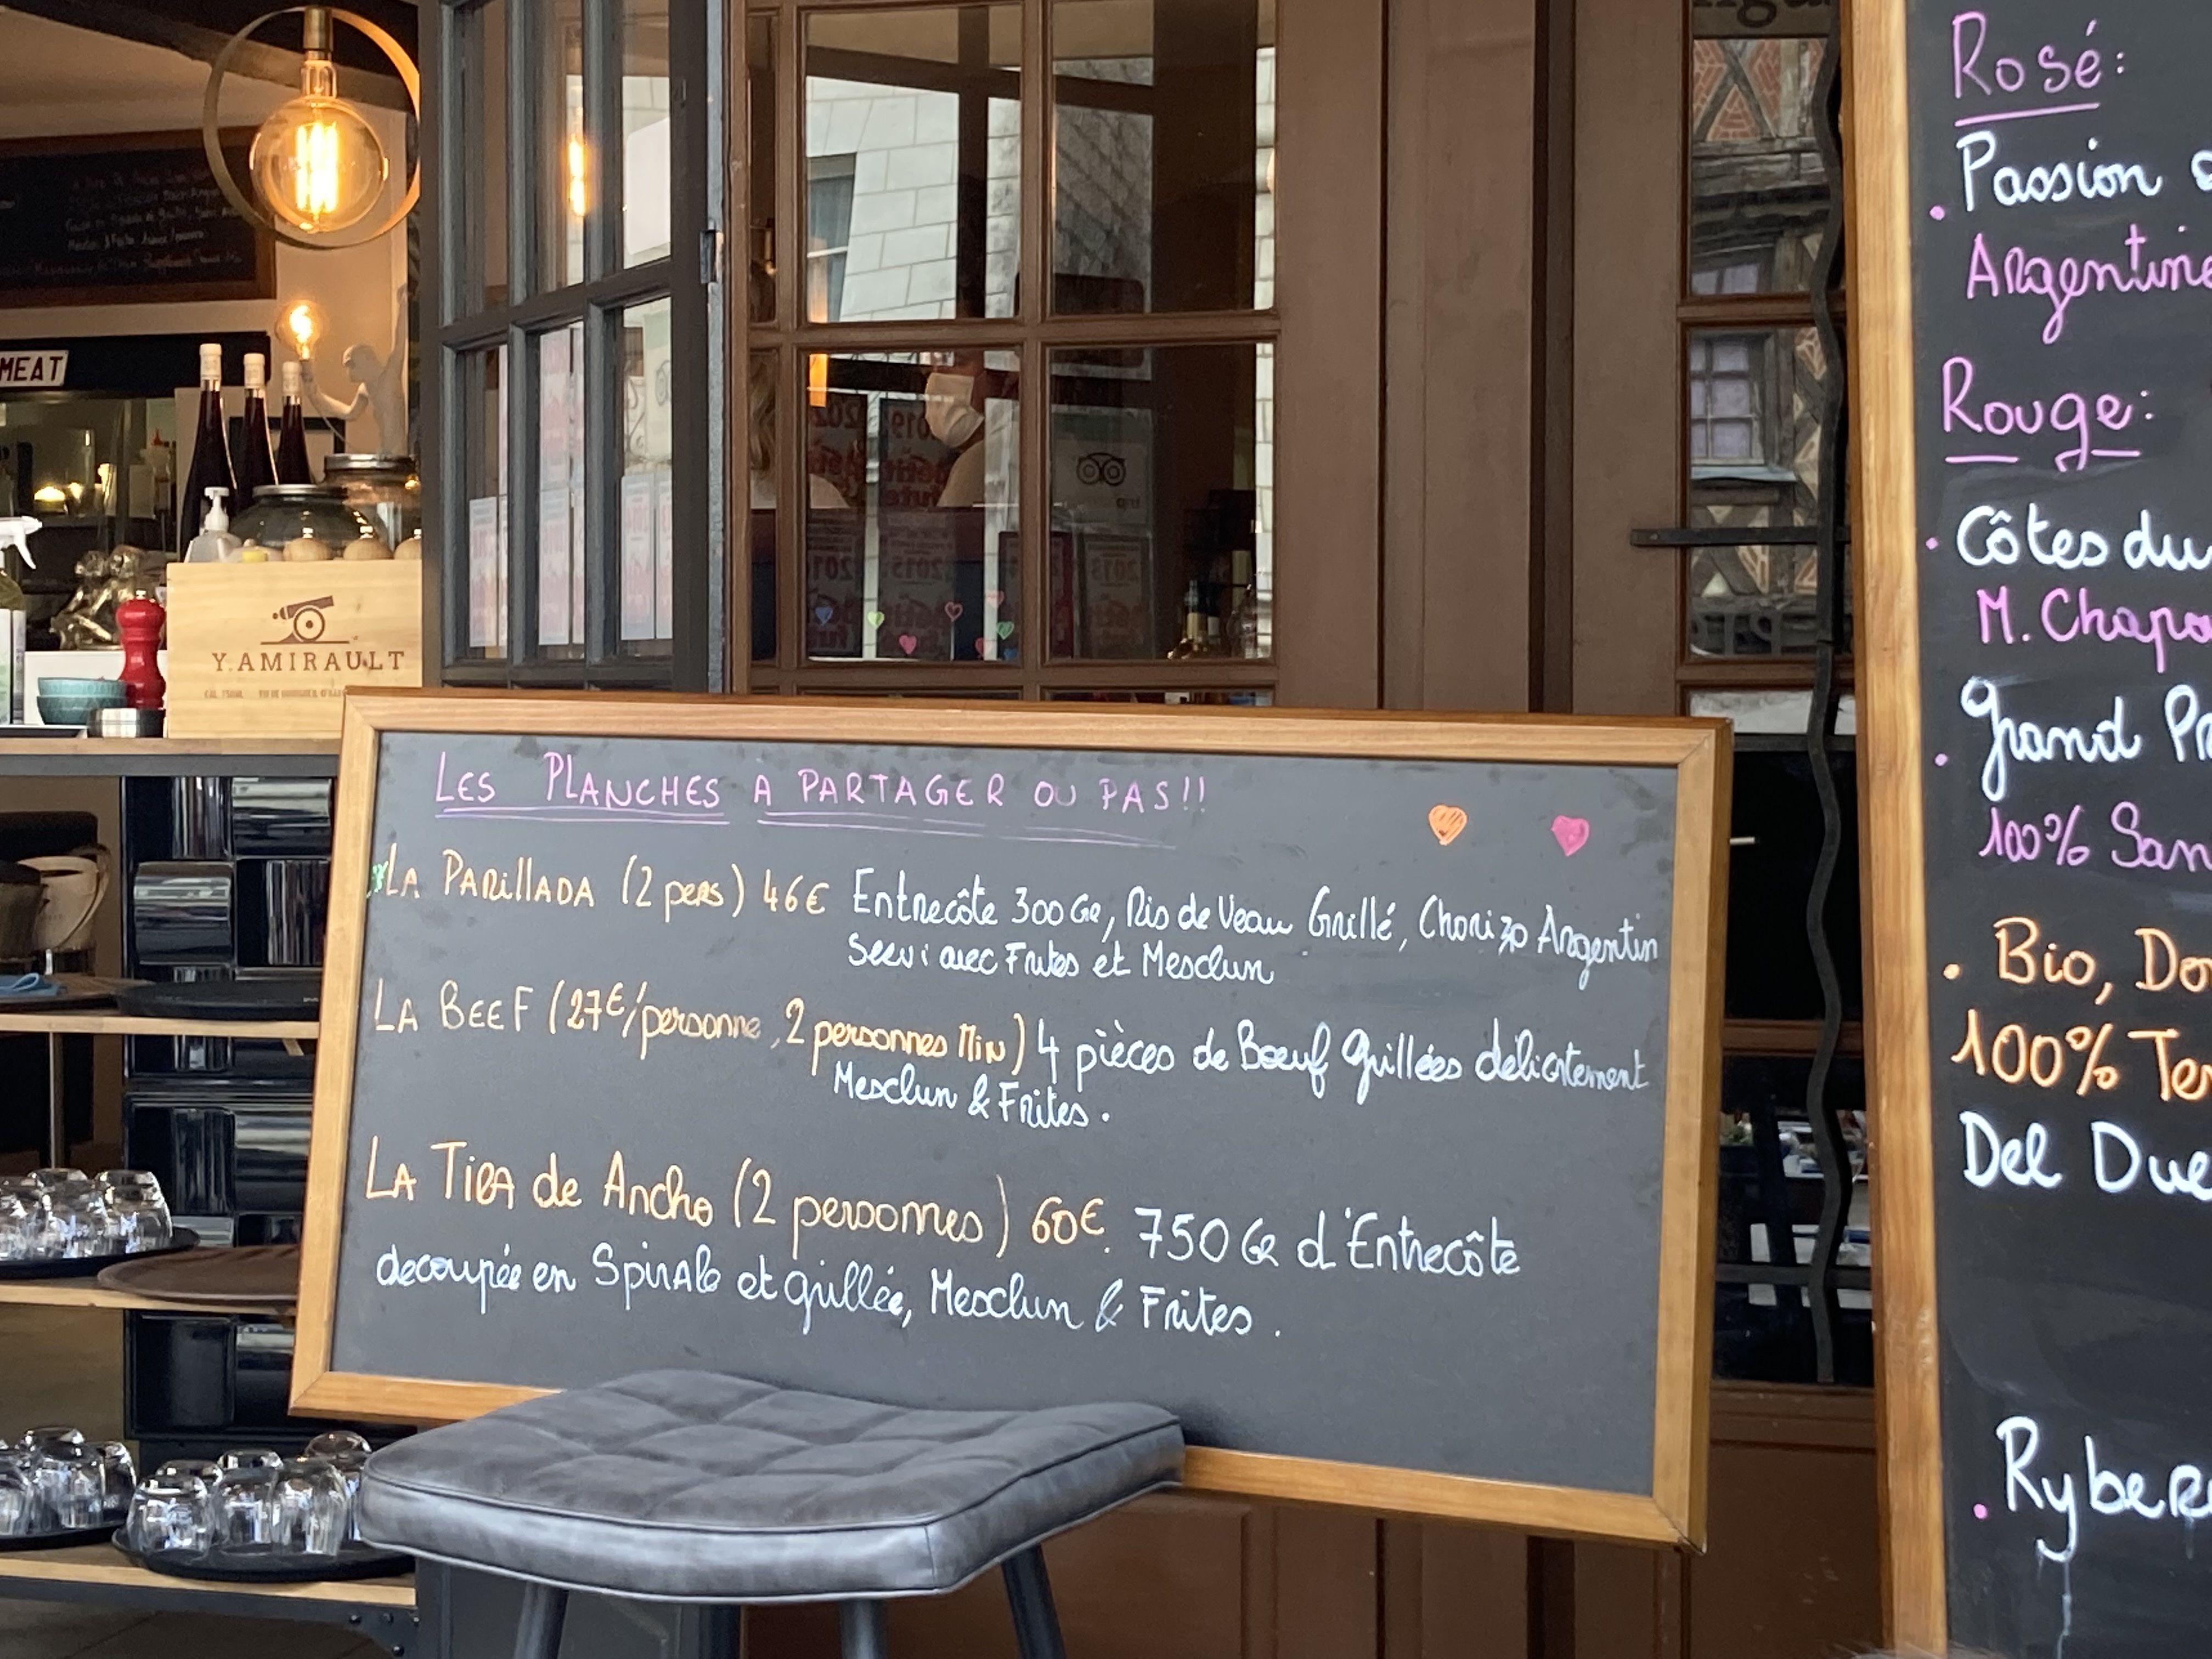 MEAT
Y.AMIRAULT
LES PLANCHES A PARTAGER OU PAS!!
LA PARillADA (2 pers) 46€ Entrecôte 300 Gr, Ris de Veau Grillé, Chorizo Argentin
Servi avec Frites et Mesclun
LA BEEF (27€/personne, 2 personnes MiN) 4 pièces de Boeuf Grillées délicatement
Mesclun & Frites.
LA TiRA de Ancho (2 personnes) 60€. 750 Gr d'Entrecôte
decoupée en SpirAle et grillée, Mesclun & Frites.
Rosé:
Passion
Argentine
Rouge:
Côtes du
M. Chapo
Grand Pr
100% San
Bio, Do
100% Tem
Del Due
Ryber
2019
2015
2013